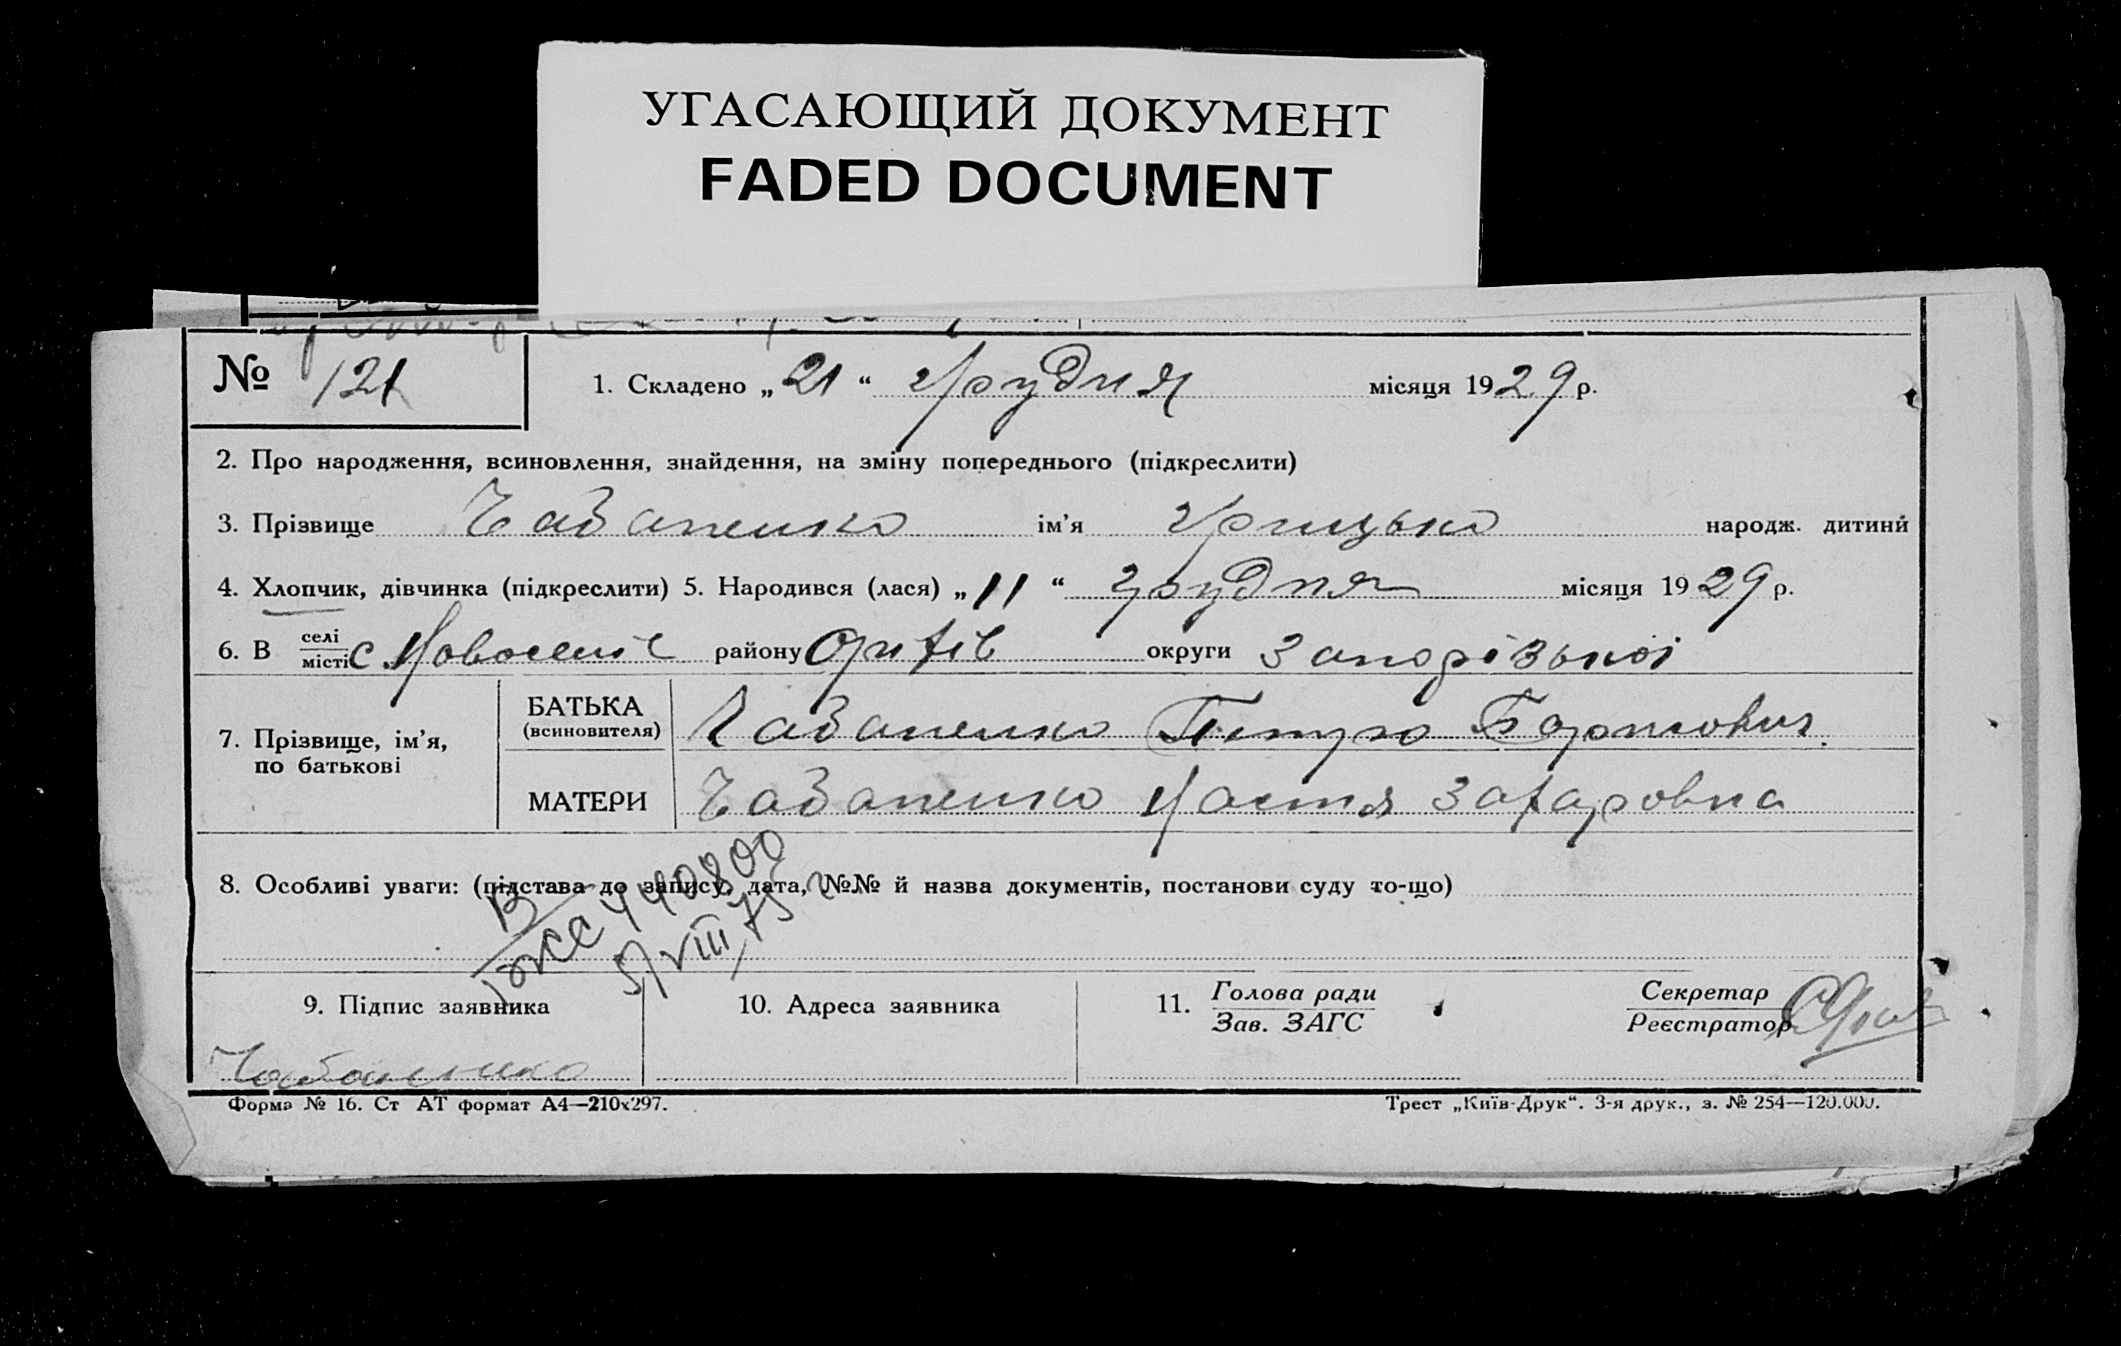 УГАСАЮЩИЙ ДОКУМЕНТ
FADED DOCUMENT
№ 121
1. Складено „ 21 “ грудня місяця 1929 р.
2. Про народження, всиновлення, знайдення, на зміну попереднього (підкреслити)
3. Прізвище Чабаненко ім’я Грицько народж. дитини
4. Хлопчик, дівчинка (підкреслити) 5. Народився (лася) „ 11 “ грудня місяця 1929 р.
6. В селі
місті с. району Оріхів округи Запорізької
7. Прізвище, ім’я,
по батькові
БАТЬКА
(всиновителя)
Чабаненко Петро
МАТЕРИ
Чабаненко Настя Захаровна
8. Особливі уваги: (підстава до запису, дата, №№ й назва документів, постанови суду то-що)
5/VIII 75
9. Підпис заявника
10. Адреса заявника
11. Голова ради
Зав. ЗАГС
Секретар
Реєстратор
Чабаненко
Форма № 16. Ст АТ формат А4—210х297.
Трест „Київ-Друк“. 3-я друк., з. № 254—120.000.